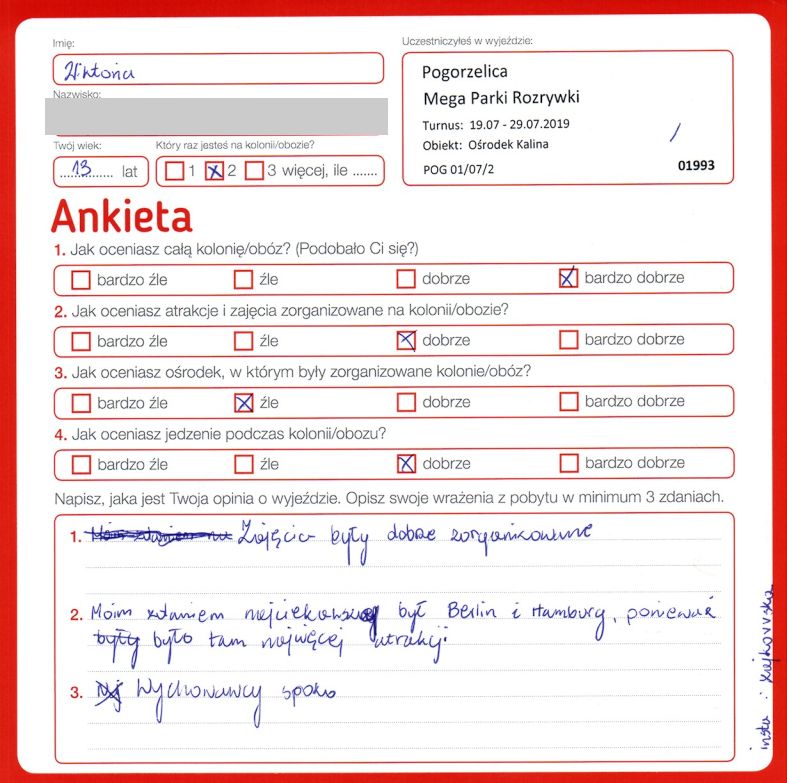 Imię:
Wiktoria
Nazwisko:
Twój wiek:
13 lat
Który raz jesteś na kolonii/obozie?
1 x 2 3 więcej, ile .......
Uczestniczyłeś w wyjeździe:
Pogorzelica
Mega Parki Rozrywki
Turnus: 19.07 - 29.07.2019
Obiekt: Ośrodek Kalina
POG 01/07/2
01993
Ankieta
1. Jak oceniasz całą kolonię/obóz? (Podobało Ci się?)
bardzo źle źle dobrze x bardzo dobrze
2. Jak oceniasz atrakcje i zajęcia zorganizowane na kolonii/obozie?
bardzo źle źle x dobrze bardzo dobrze
3. Jak oceniasz ośrodek, w którym były zorganizowane kolonie/obóz?
bardzo źle x źle dobrze bardzo dobrze
4. Jak oceniasz jedzenie podczas kolonii/obozu?
bardzo źle źle x dobrze bardzo dobrze
Napisz, jaka jest Twoja opinia o wyjeździe. Opisz swoje wrażenia z pobytu w minimum 3 zdaniach.
1. Zajęcia były dobrze zorganizowane
2. Moim zdaniem najciekawszy był Berlin i Hamburg, ponieważ
były było tam najwięcej atrakcji.
3. Wychowawcy spoko
insta :